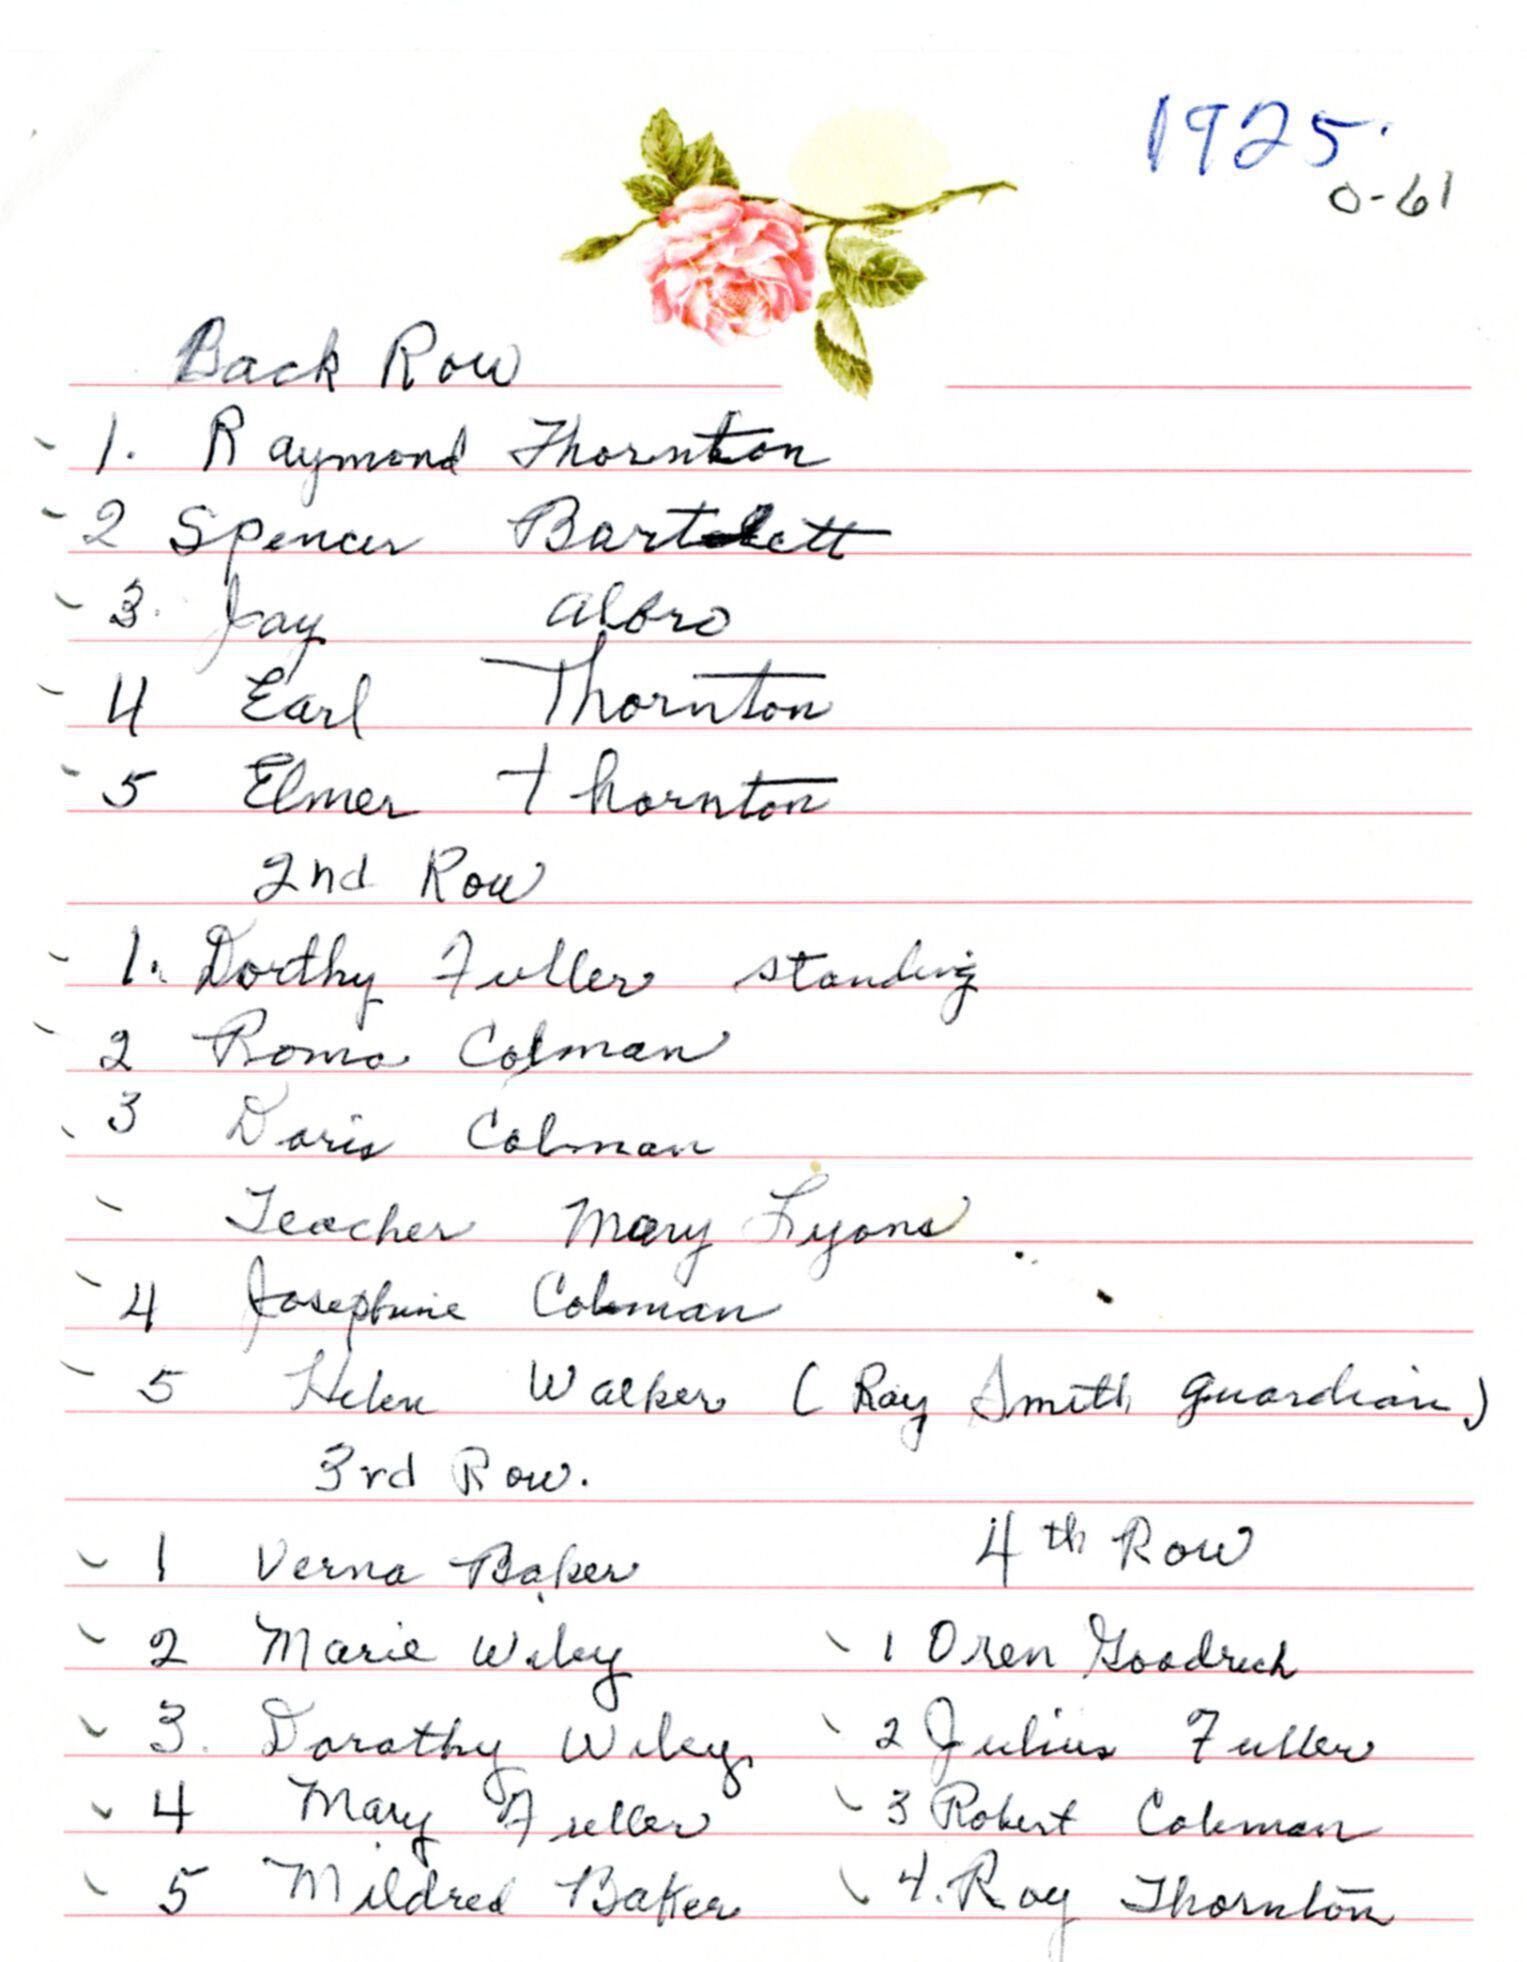 1925
0-61
Back Row
1. Raymond Thornton
2 Spencer Bartlett
3. Jay Albro
4 Earl Thornton
5 Elmer Thornton
2nd Row
1. Dorthy Fuller standing
2 Roma Colman
3 Doris Colman
Teacher Mary Lyons
4 Josephine Colman
5 Helen Walker (Ray Smith guardian)
3rd Row.
1 Verna Baker
2 Marie Wiley
3. Dorothy Wiley
4 Mary Fuller
5 Mildred Baker
4th Row
1 Oren Goodrich
2 Julius Fuller
3 Robert Coleman
4. Roy Thornton